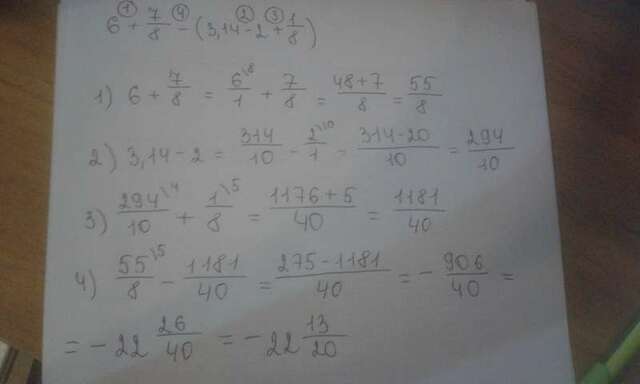 ① ④ ② ③
6 + 7/8 - (3,14 - 2 + 1/8)
1) 6 + 7/8 = 6\8/1 + 7/8 = 48+7/8 = 55/8
2) 3,14 - 2 = 314/10 - 2\10/1 - 314-20/10 = 294/10
3) 294\4/10 + 1\5/8 = 1176+5/40 = 1181/40
4) 55\5/8 - 1181/40 = 275-1181/40 = - 906/40 =
= - 22 26/40 = - 22 13/20